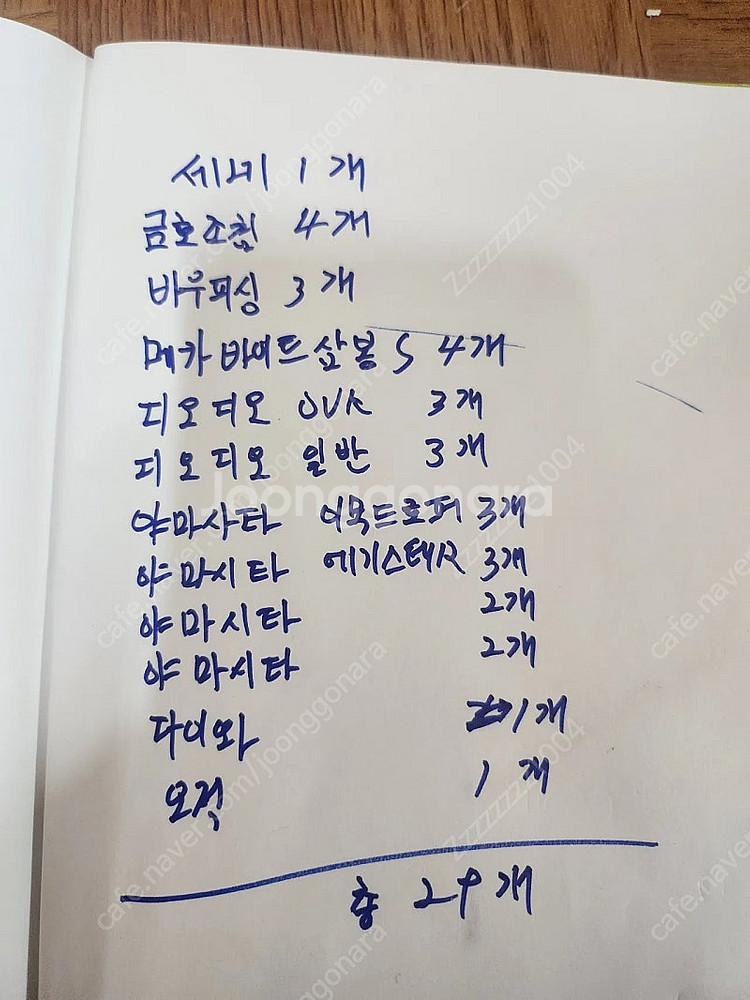 세네 1개
금호조침 4개
바우피싱 3개
메카 바이트 삼봉 S 4개
디오디오 OVR 3개
디오디오 일반 3개
야마사타 이목드로퍼 3개
야마시타 에기스테R 3개
야마시타 2개
야마시타 2개
다이와 1개
오징 1개
총 29개
Joonggonara
cafe.naver.com/joonggonara
Zzzzzzzz1004